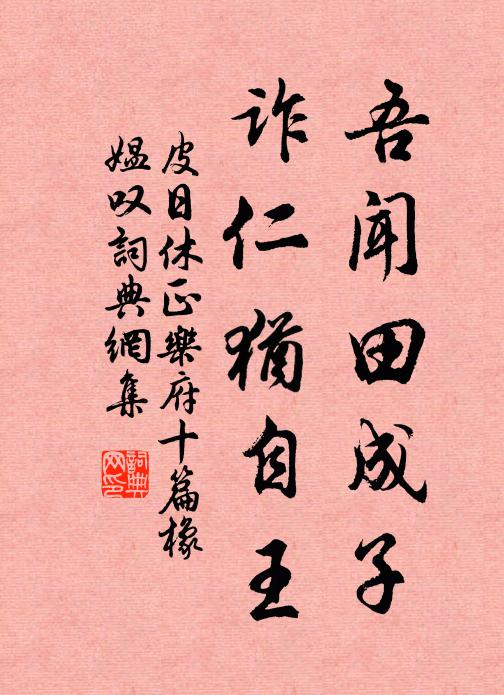 吾闻田成子
诈仁犹自王
皮日休正樂府十篇橡
媪叹詞典網集
詞典
网印